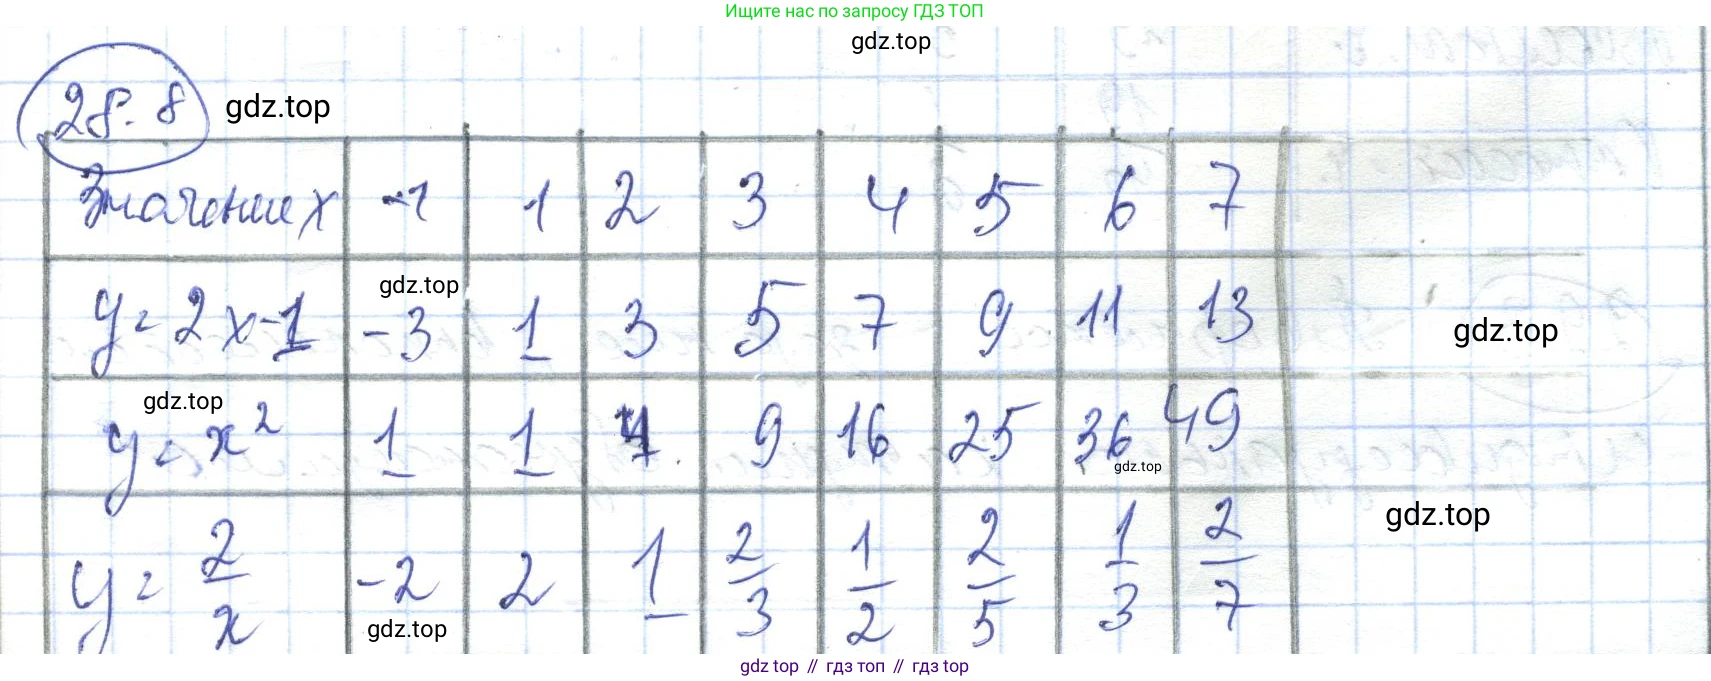 Ищите нас по запросу ГДЗ ТОП
gdz.top
28.8 gdz.top
Значение x -1 1 2 3 4 5 6 7
gdz.top
y = 2x-1 -3 1 3 5 7 9 11 13
gdz.top
gdz.top
y = x² 1 1 4 9 16 25 36 49
gdz.top
gdz.top
y = 2/x -2 2 1 2/3 1/2 2/5 1/3 2/7
gdz.top
gdz top // гдз топ // gdz.top